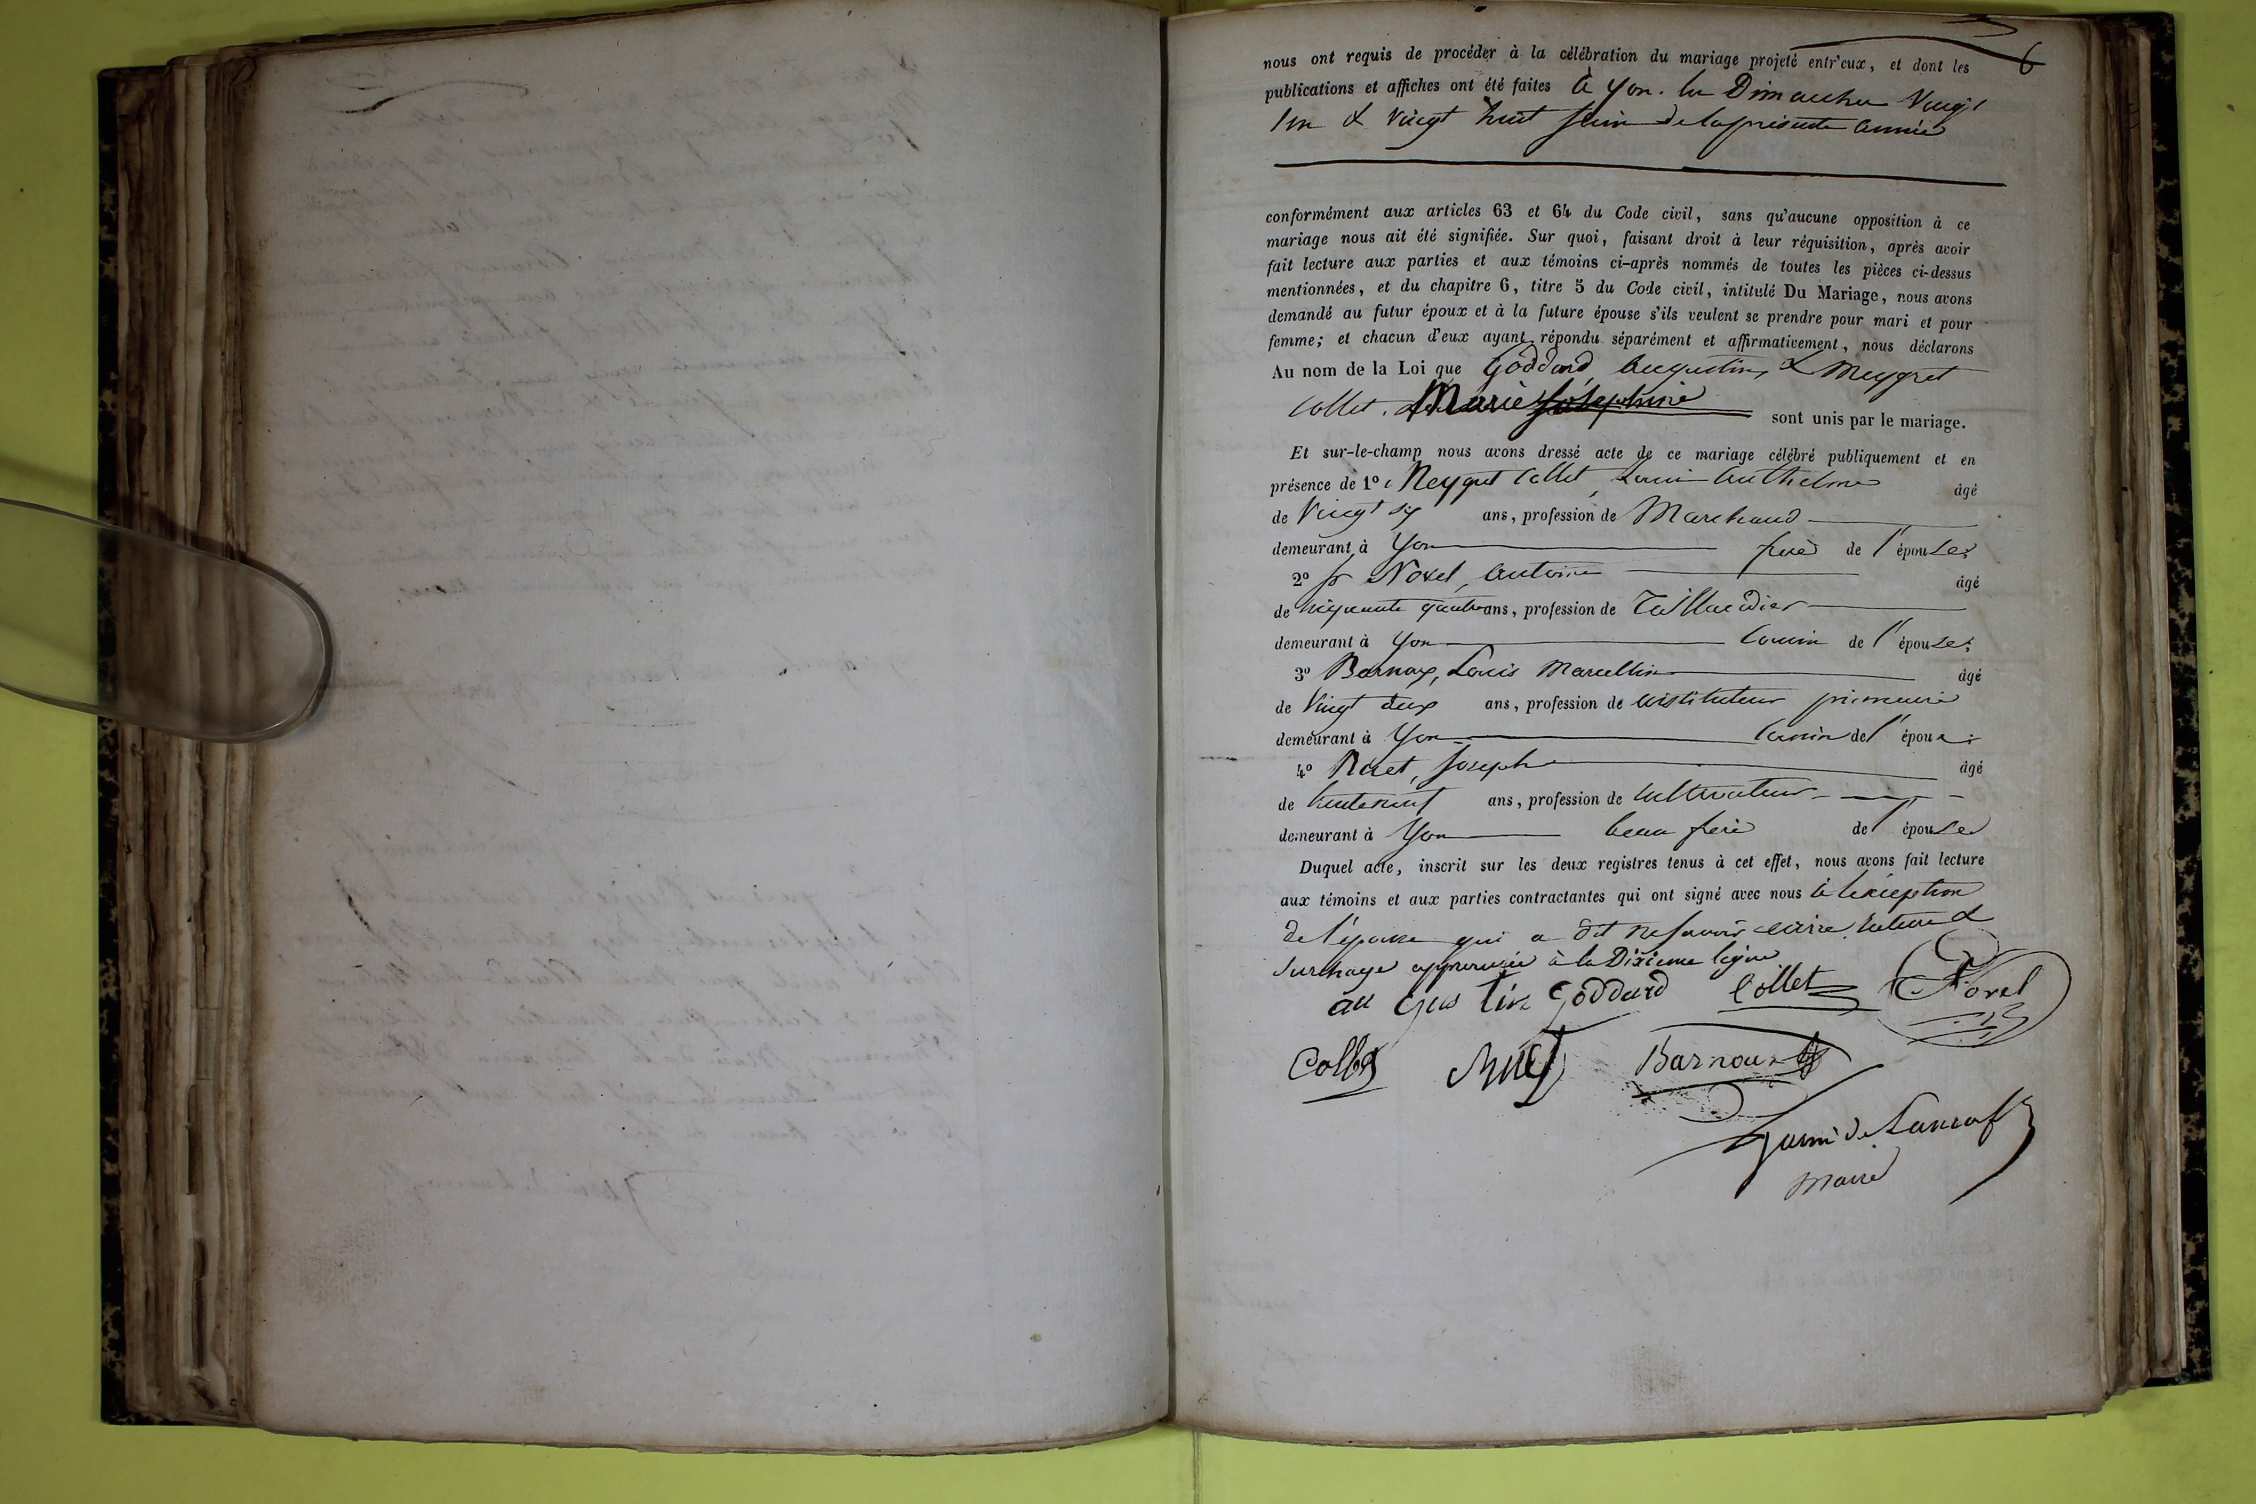 6
nous ont requis de procéder à la célébration du mariage projeté entr'eux, et dont les
publications et affiches ont été faites à yon. les Dimanches Vingt
un & vingt huit juin de la présente année
conformément aux articles 63 et 64 du Code civil, sans qu'aucune opposition à ce
mariage nous ait été signifiée. Sur quoi, faisant droit à leur réquisition, après avoir
fait lecture aux parties et aux témoins ci-après nommés de toutes les pièces ci-dessus
mentionnées, et du chapitre 6, titre 5 du Code civil, intitulé Du Mariage, nous avons
demandé au futur époux et à la future épouse s'ils veulent se prendre pour mari et pour
femme; et chacun d'eux ayant répondu séparément et affirmativement, nous déclarons
Au nom de la Loi que Goddard augustin, & Meygret
Collet. Marie Joséphine sont unis par le mariage.
Et sur-le-champ nous avons dressé acte de ce mariage célébré publiquement et en
présence de 1º Meygret Collet, Louis Anthelme âgé
de Vingt six ans, profession de Marchand
demeurant à yon frère de l'épouse;
2º Novel, antoine âgé
de cinquante quatre ans, profession de Taillandier
demeurant à yon Cousin de l'épouse;
3º Barnoux, Louis Marcellin âgé
de Vingt deux ans, profession de instituteur primaire
demeurant à yon Cousin de l'époux;
4º Joseph âgé
de trente neuf ans, profession de cultivateur
demeurant à yon beau frère de l'épouse
Duquel acte, inscrit sur les deux registres tenus à cet effet, nous avons fait lecture
aux témoins et aux parties contractantes qui ont signé avec nous à l'exception
de l'épouse qui a dit ne savoir écrire, rature &
surcharge approuvée à la Dixieme ligne
au gus tin Goddard Collet Novel
Collet Barnoux
Maire